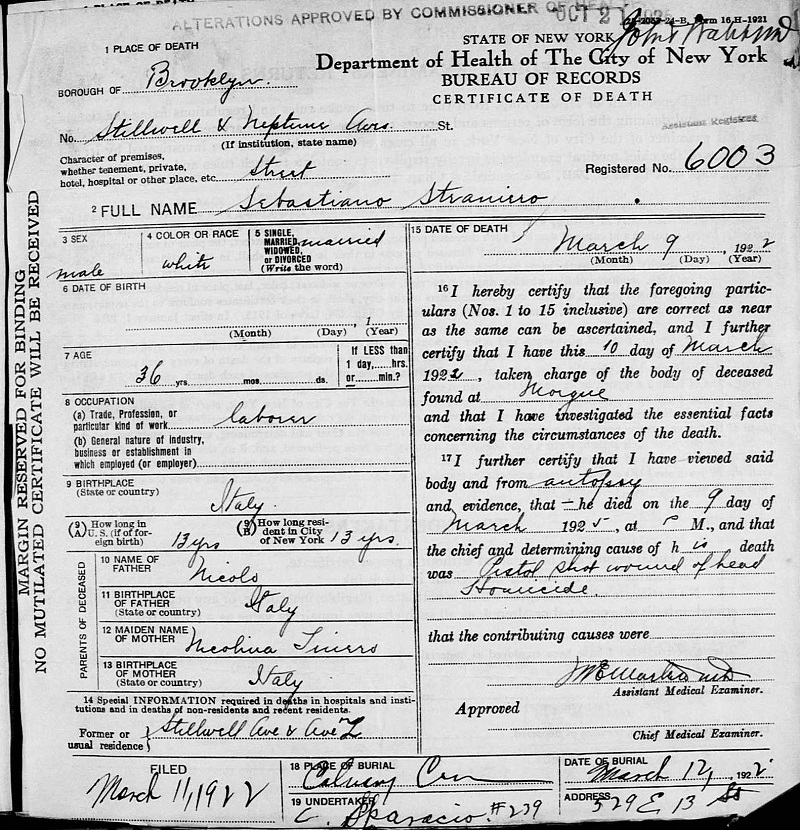 PLACE OF DEATH
ALTERATIONS APPROVED BY COMMISSIONER OF HEALTH
OCT 2
24-B, Form 16 H-1921
1 PLACE OF DEATH
STATE OF NEW YORK
Department of Health of The City of New York
BUREAU OF RECORDS
CERTIFICATE OF DEATH
Assistant Registrar
BOROUGH OF Brooklyn
No. Stillwell & Neptune Aves. St.
(If institution, state name)
Character of premises,
whether tenement, private,
hotel, hospital or other place, etc. Street
Registered No. 6003
2 FULL NAME Sebastiano Stranirro
MARGIN RESERVED FOR BINDING
NO MUTILATED CERTIFICATE WILL BE RECEIVED
3 SEX
male
4 COLOR OR RACE
white
5 SINGLE,
MARRIED,
WIDOWED,
or DIVORCED
(Write the word)
married
6 DATE OF BIRTH
, 1
(Month) (Day) (Year)
7 AGE
36 yrs. mos. ds.
If LESS than
1 day, hrs.
or min.?
8 OCCUPATION
(a) Trade, Profession, or
particular kind of work laborer
(b) General nature of industry,
business or establishment in
which employed (or employer)
9 BIRTHPLACE
(State or country)
Italy
(9 A) How long in
U. S. (if of for-
eign birth) 13 yrs
(9 B) How long resi-
dent in City
of New York 13 yrs.
PARENTS OF DECEASED
10 NAME OF
FATHER
Nicolo
11 BIRTHPLACE
OF FATHER
(State or country)
Italy
12 MAIDEN NAME
OF MOTHER
Nicolina
13 BIRTHPLACE
OF MOTHER
(State or country)
Italy
14 Special INFORMATION required in deaths in hospitals and insti-
tutions and in deaths of non-residents and recent residents.
Former or
usual residence
Stillwell Ave & Ave
15 DATE OF DEATH
March 9, 1922
(Month) (Day) (Year)
16 I hereby certify that the foregoing partic-
ulars (Nos. 1 to 15 inclusive) are correct as near
as the same can be ascertained, and I further
certify that I have this 10 day of March
1922, taken charge of the body of deceased
found at Morgue
and that I have investigated the essential facts
concerning the circumstances of the death.
17 I further certify that I have viewed said
body and from autopsy
and evidence, that he died on the 9 day of
March 1925, at P M., and that
the chief and determining cause of his death
was Pistol shot wound of head
Homicide.
that the contributing causes were
Assistant Medical Examiner.
Approved
Chief Medical Examiner.
FILED
March 11, 1922
18 PLACE OF BURIAL
Calvary Cem
DATE OF BURIAL
March 12, 1922
19 UNDERTAKER
C. Sparacio #239
ADDRESS
529 E 13 St